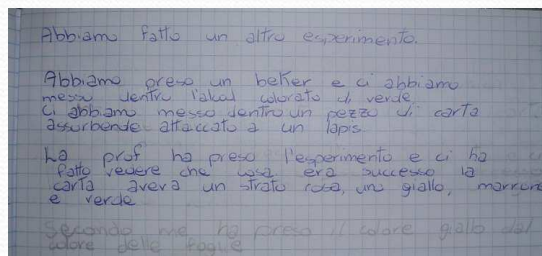 Abbiamo fatto un altro esperimento.
Abbiamo preso un beker e ci abbiamo
messo dentro l'alcol colorato di verde
Ci abbiamo messo dentro un pezzo di carta
assorbende attaccato a un lapis.
La prof ha preso l'esperimento e ci ha
fatto vedere che cosa era successo la
carta aveva un strato rosa, uno giallo, marrone
e verde
Secondo me ha preso il colore giallo dal
colore delle foglie